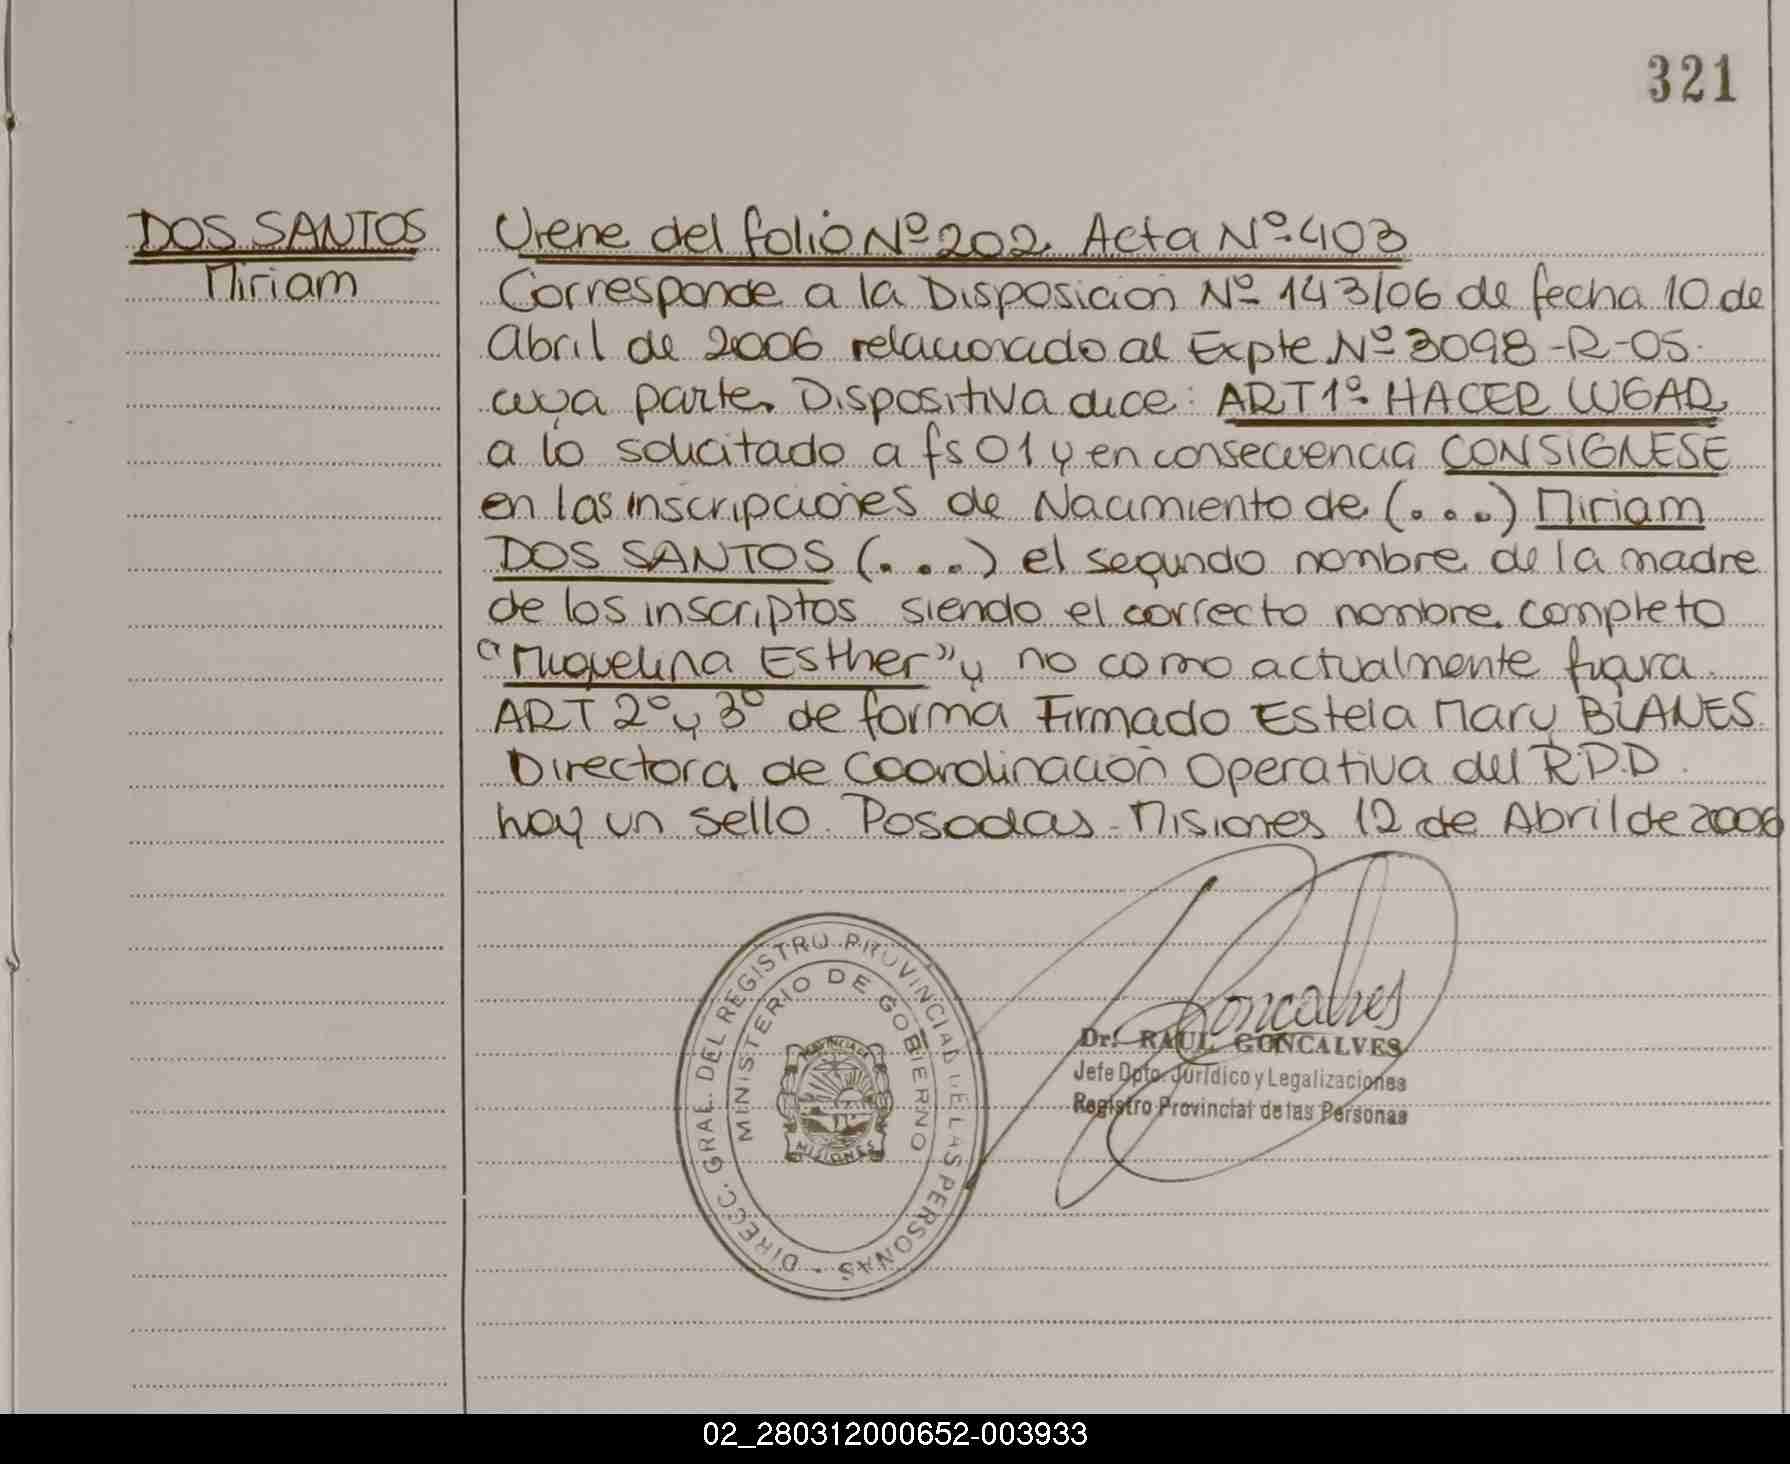 321
DOS SANTOS
Miriam
Viene del folio Nº 202 Acta Nº 403
Corresponde a la Disposición Nº 143/06 de fecha 10 de
Abril de 2006 relacionado al Expte Nº 3098-R-05.
cuya parte Dispositiva dice: ART 1º HACER LUGAR
a lo solicitado a fs 01 y en consecuencia CONSIGNESE
en las inscripciones de Nacimiento de (...) Miriam
DOS SANTOS (...) el segundo nombre de la madre
de los inscriptos siendo el correcto nombre completo
"Miquelina Esther" y no como actualmente figura.
ART 2º y 3º de forma Firmado Estela Mary BLANES.
Directora de Coordinación Operativa del R.D.D.
hay un sello. Posadas - Misiones 12 de Abril de 2006
DIRECC. GRAL. DEL REGISTRO PROVINCIAL DE LAS PERSONAS
MINISTERIO DE GOBIERNO
PROVINCIA DE
MISIONES
Goncalves
Dr. RAUL GONCALVES
Jefe Dpto. Jurídico y Legalizaciones
Registro Provincial de las Personas
02_280312000652-003933